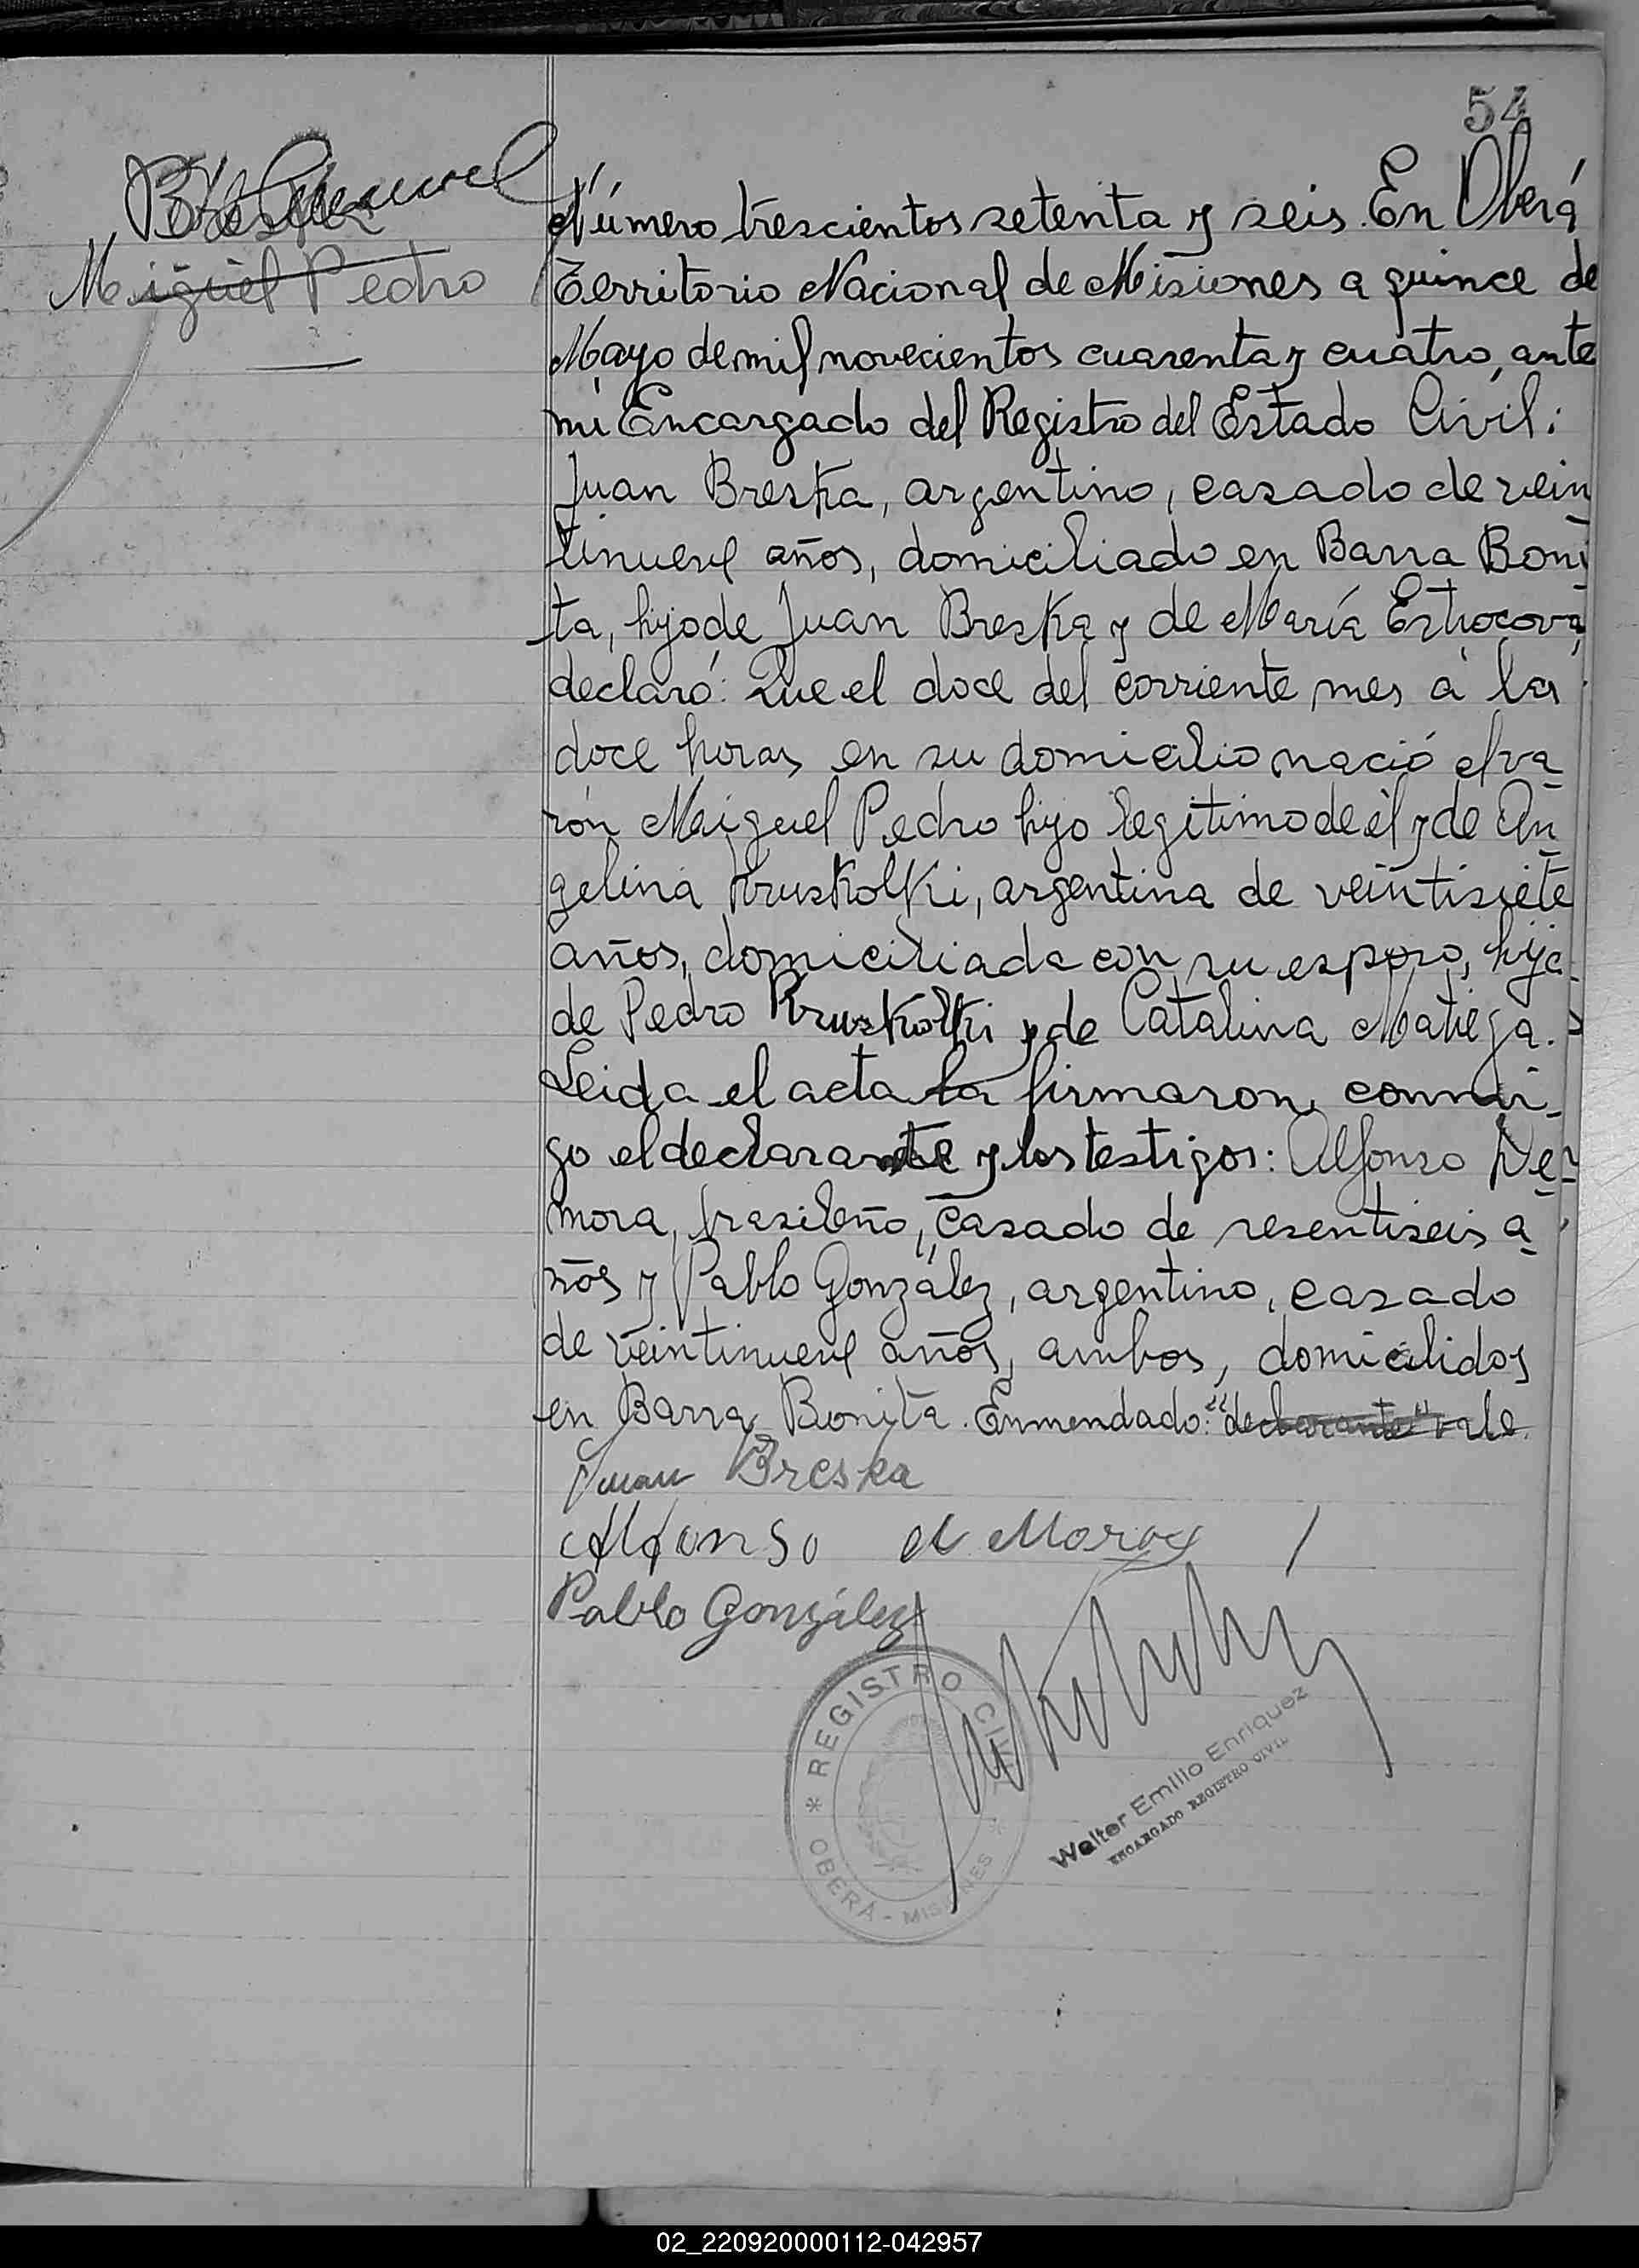 54
Breska
Miguel Pedro
Número trescientos setenta y seis. En Oberá
Territorio Nacional de Misiones a quince de
Mayo de mil novecientos cuarenta y cuatro, ante
mí Encargado del Registro del Estado Civil:
Juan Breska, argentino, casado de vein
tinueve años, domiciliado en Barra Boni
ta, hijo de Juan Breska y de María Estrocova,
declaró: Que el doce del corriente mes a las
doce horas en su domicilio nació el va
rón Miguel Pedro hijo legitimo de él y de An
gelina Kruskolki, argentina de veintisiete
años, domiciliada con su esposo, hija
de Pedro Kruskolki y de Catalina Matieja.
Leida el acta la firmaron, conmi-
go el declarante y los testigos: Alfonso De
mora, brasileño, casado de sesentiseis a
ños y Pablo González, argentino, casado
de veintinueve años, ambos, domicilidos
en Barra Bonita. Enmendado: "declarante" vale.
Juan Breska
Alfonso de Moray
Pablo González
* REGISTRO CIVIL *
OBERÁ - MISIONES
Walter Emilio Enriquez
ENCARGADO REGISTRO CIVIL
02_220920000112-042957